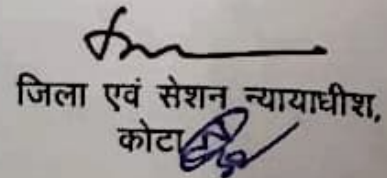 जिला एवं सेशन न्यायाधीश,
कोटा